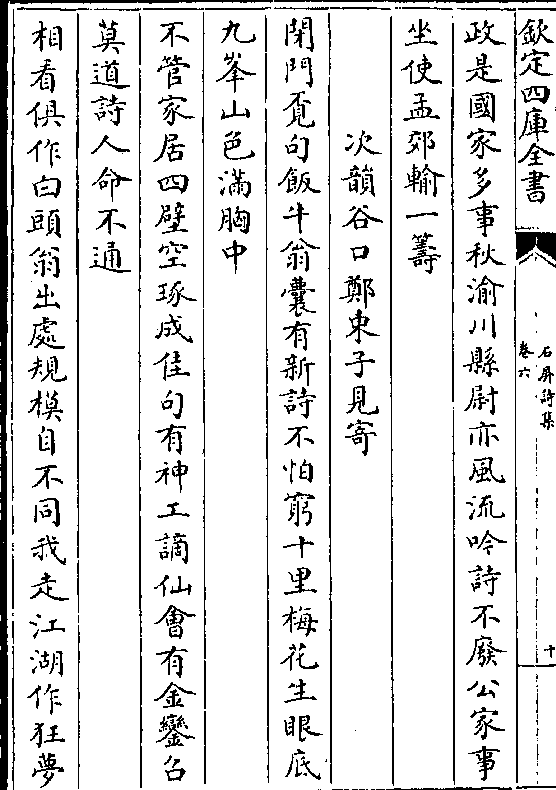 欽定四庫全書
石屏詩集
卷六
十
政是國家多事秋渝川縣尉亦風流吟詩不廢公家事
坐使孟郊輸一籌
次韻谷口鄭東子見寄
閉門覓句飯牛翁囊有新詩不怕窮十里梅花生眼底
九峯山色滿胸中
不管家居四壁空琢成佳句有神工謫仙會有金鑾召
莫道詩人命不通
相看俱作白頭翁出處規模自不同我走江湖作狂夢